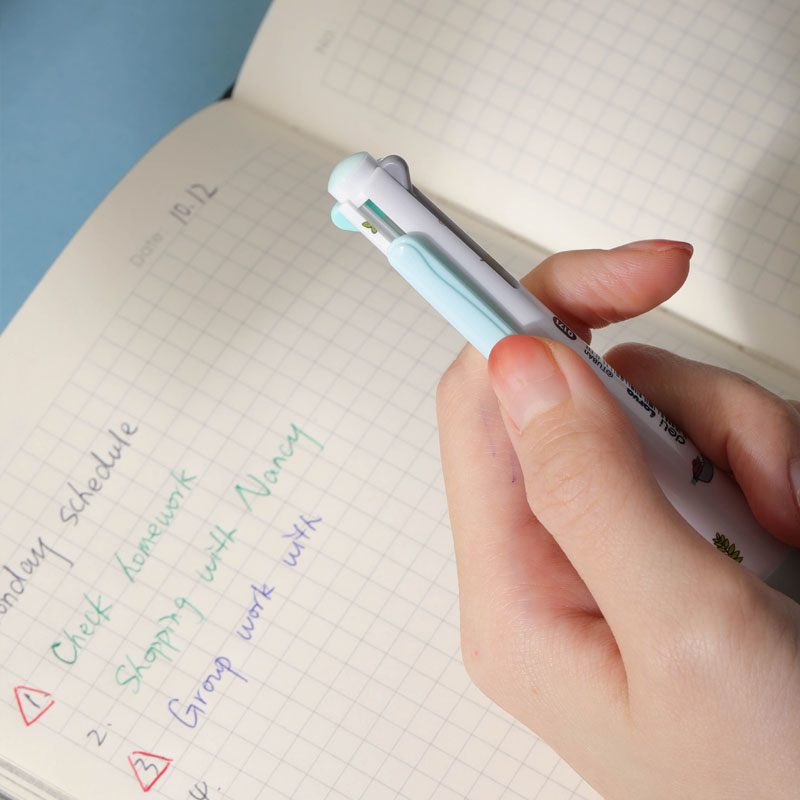 NO.
Date: 10.12
onday schedule
1 Check homework
2. Shopping with Nancy
3 Group work with
4.
deli